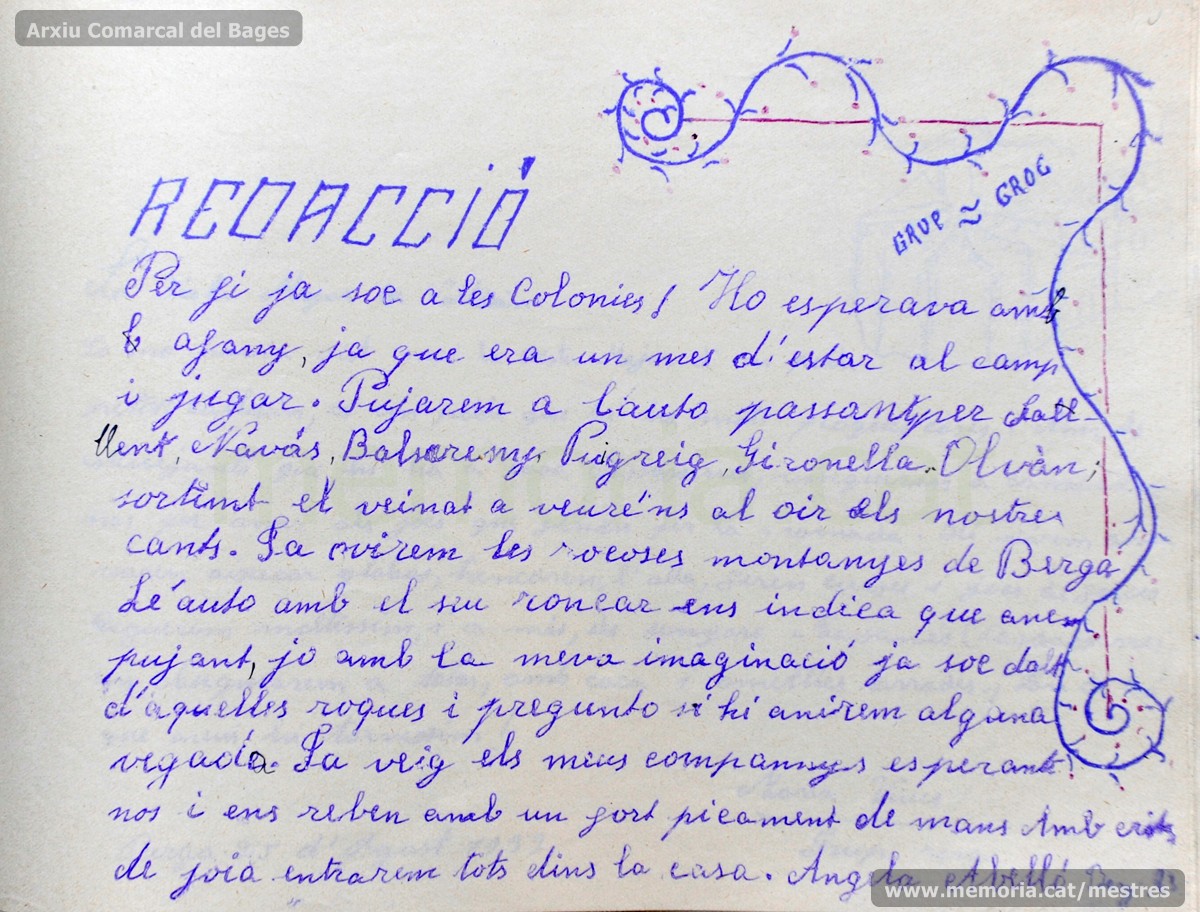 Arxiu Comarcal del Bages
REDACCIÓ
GRUP ≈ GROC
Per fi ja soc a les Colonies! Ho esperava amb
b afany, ja que era un mes d'estar al camp
i jugar. Pujarem a l'auto passant per Sall-
llent, Navás, Balsareny, Puigreig, Gironella. Olvàn;
sortint el veinat a veuré'ns al oir els nostres
cants. Ja ovirem les rocoses montanyes de Berga
Lé'auto amb el seu roncar ens indica que anem
pujant, jo amb la meva imaginació ja soc dalt
d'aquelles roques i pregunto si hi anirem alguna
vegada. Ja veig els meus companys esperant
nos i ens reben amb un fort picament de mans Amb crits
de joia entrarem tots dins la casa. Angela Abelló
www.memoria.cat/mestres